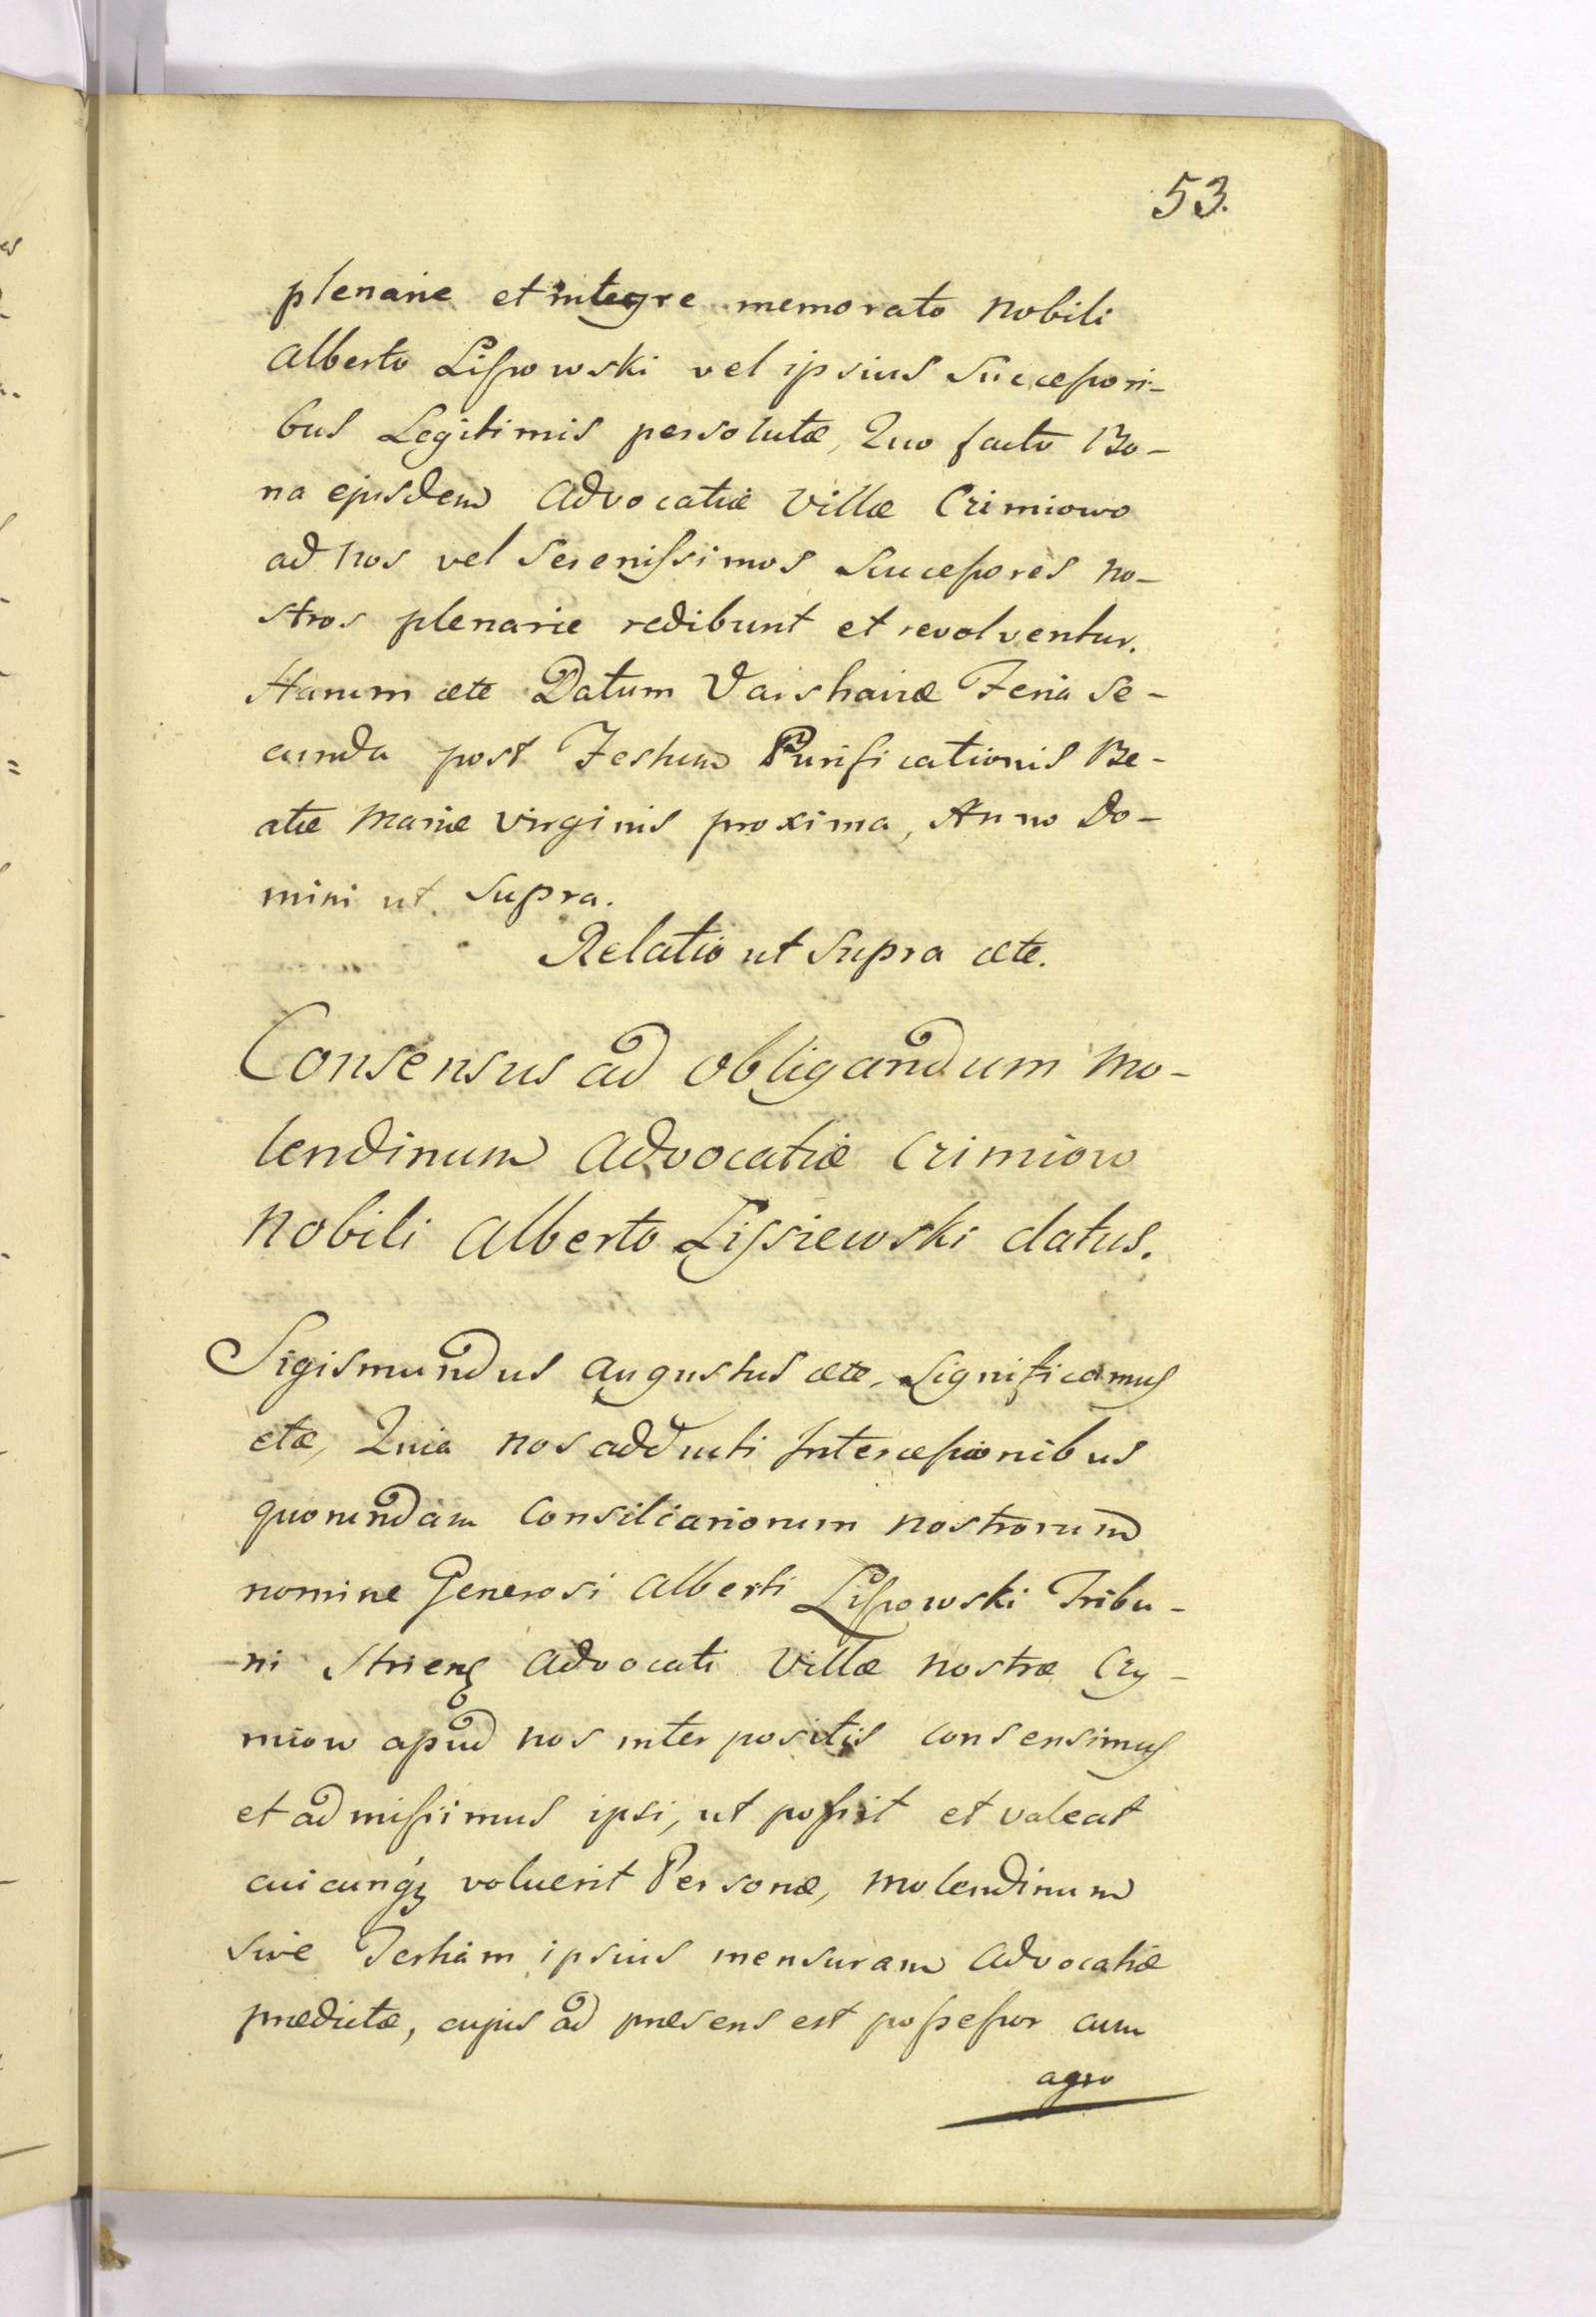 53.
plenarie et integre memorato Nobili
Alberto Lissowski vel ipsius Successori-
bus Legitimis persolutæ, Quo facto Bo-
na ejusdem Advocatiæ Villæ Crimiowo
ad Nos vel Serenissimos Successores no-
stros plenarie redibunt et revolventur.
Harum ætc Datum Varshaviæ Feria Se-
cunda post Festum Purificationis Be-
atæ Mariæ Virginis proxima, Anno Do-
mini ut supra.
Relatio ut Supra ætc.
Consensus ad obligandum Mo-
lendinum Advocatiæ Crimiow
Nobili Alberto Lissiewski datus.
Sigismundus Augustus ætc. Significamus
etc, Quia nos adducti Intercessionibus
quorundam Consiliariorum nostrorum
nomine Generosi Alberti Lissowski Tribu-
ni Strienę Advocati Villæ nostræ Cry-
miow apud nos interpositis consensimus
et admissimus ipsi, ut possit et valeat
cuicunqȝ voluerit Personæ, Molendinum
sive Tertiam ipsius mensuram Advocatiæ
prædictæ, cujus ad præsens est possessor cum
agro